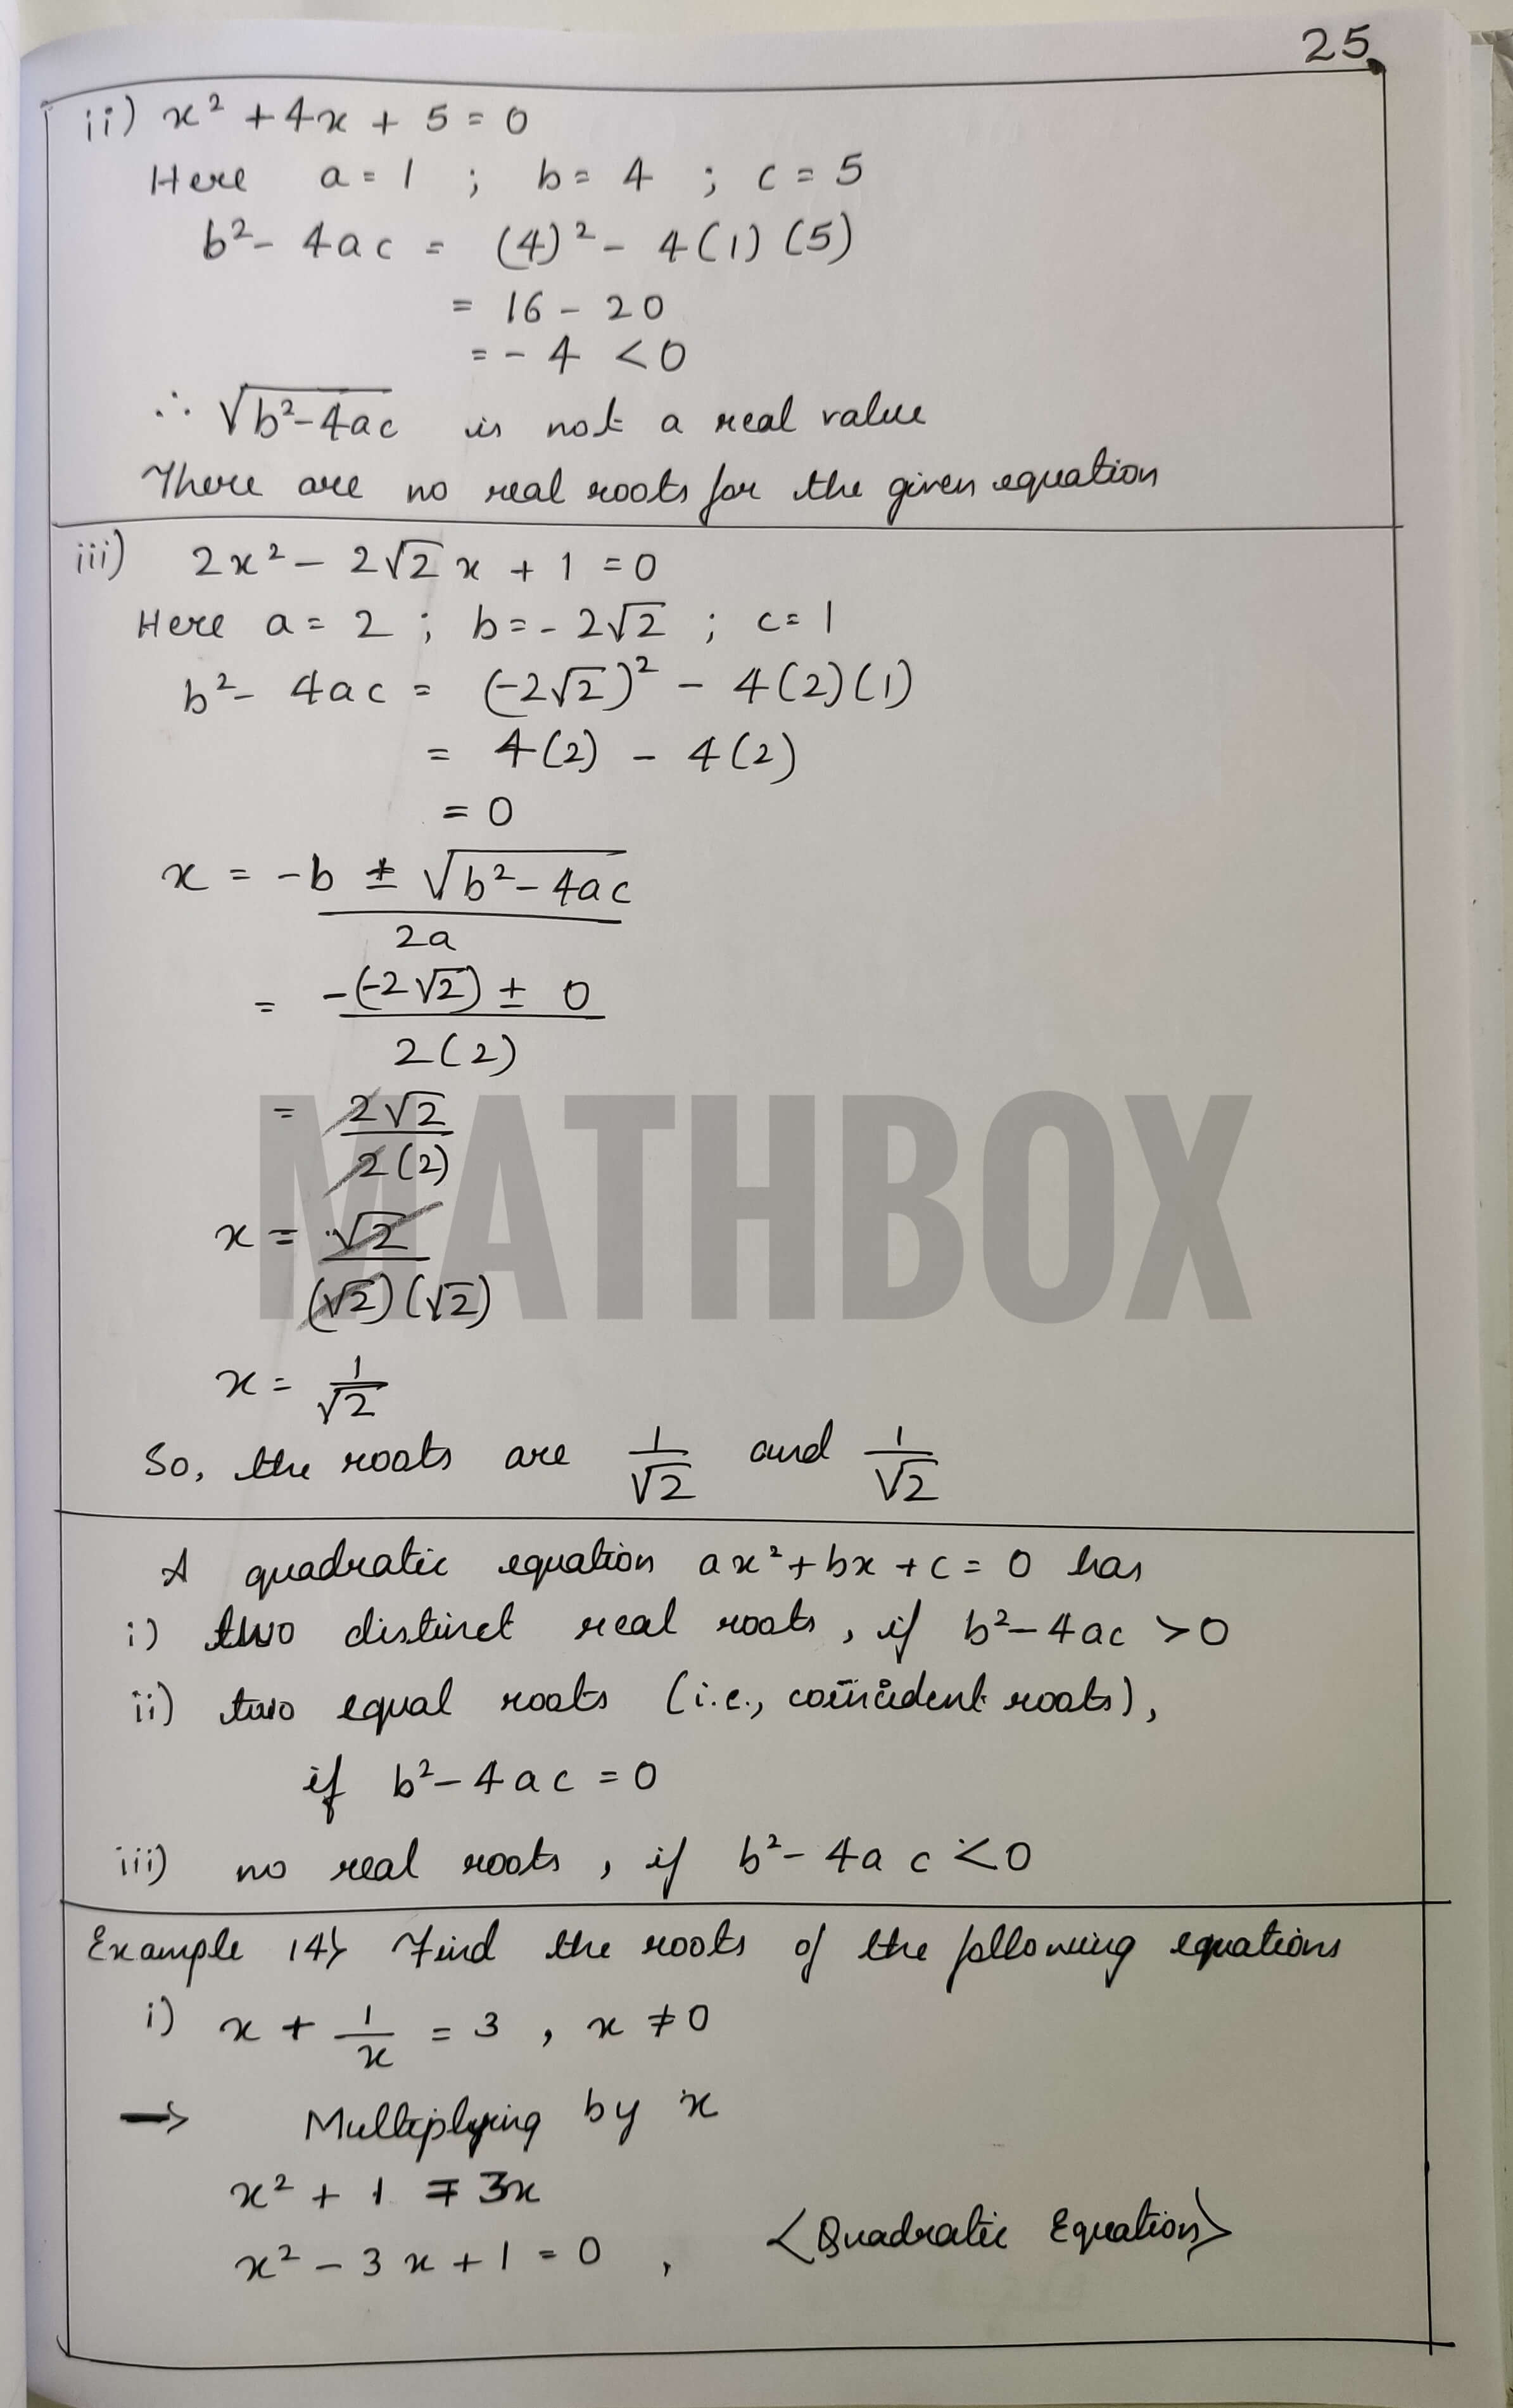 25
ii) x² + 4x + 5 = 0
Here a = 1 ; b = 4 ; c = 5
b² - 4ac = (4)² - 4(1)(5)
= 16 - 20
= - 4 < 0
∴ √(b²-4ac) is not a real value
There are no real roots for the given equation
iii) 2x² - 2√2 x + 1 = 0
Here a = 2 ; b = - 2√2 ; c = 1
b² - 4ac = (-2√2)² - 4(2)(1)
= 4(2) - 4(2)
= 0
x = -b ± √(b²-4ac)
2a
= -(-2√2) ± 0
2(2)
= 2√2
2(2)
x = √2
(√2)(√2)
x = 1/√2
So, the roots are 1/√2 and 1/√2
A quadratic equation ax² + bx + c = 0 has
i) two distinct real roots, if b² - 4ac > 0
ii) two equal roots (i.e., coincident roots),
if b² - 4ac = 0
iii) no real roots, if b² - 4ac < 0
Example 14) Find the roots of the following equations
i) x + 1/x = 3 , x ≠ 0
→ Multiplying by x
x² + 1 = 3x
x² - 3x + 1 = 0 , <Quadratic Equation>
MATHBOX